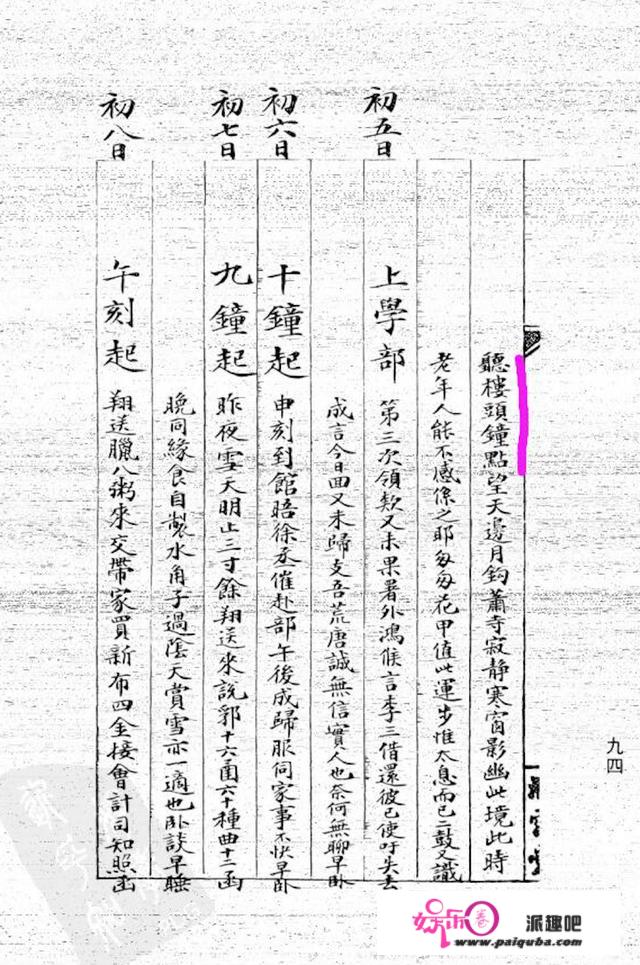 聽樓頭鐘點望天邊月鈎蕭寺寂靜寒窗影幽此境此時
老年人能不感係之耶匆匆花甲值此運步惟太息而已二鼓又識
初五日 上學部 第三次領款又未果署外鴻候言李三借還彼已使吁失去
成言今日回又未歸支吾荒唐誠無信實人也奈何無聊早卧
初六日 十鐘起 申刻到館晤徐丞催赴部午後成歸服伺家事不快早卧
初七日 九鐘起 昨夜雪天明止三寸餘翔送來說郛十六函六十種曲十二函
晚同緣食自製水角子過陰天賞雪亦一適也卧談早睡
初八日 午刻起 翔送臘八粥來交帶家買新布四金接會計司知照函
九四
娱乐圈 派趣吧
www.paiquba.com